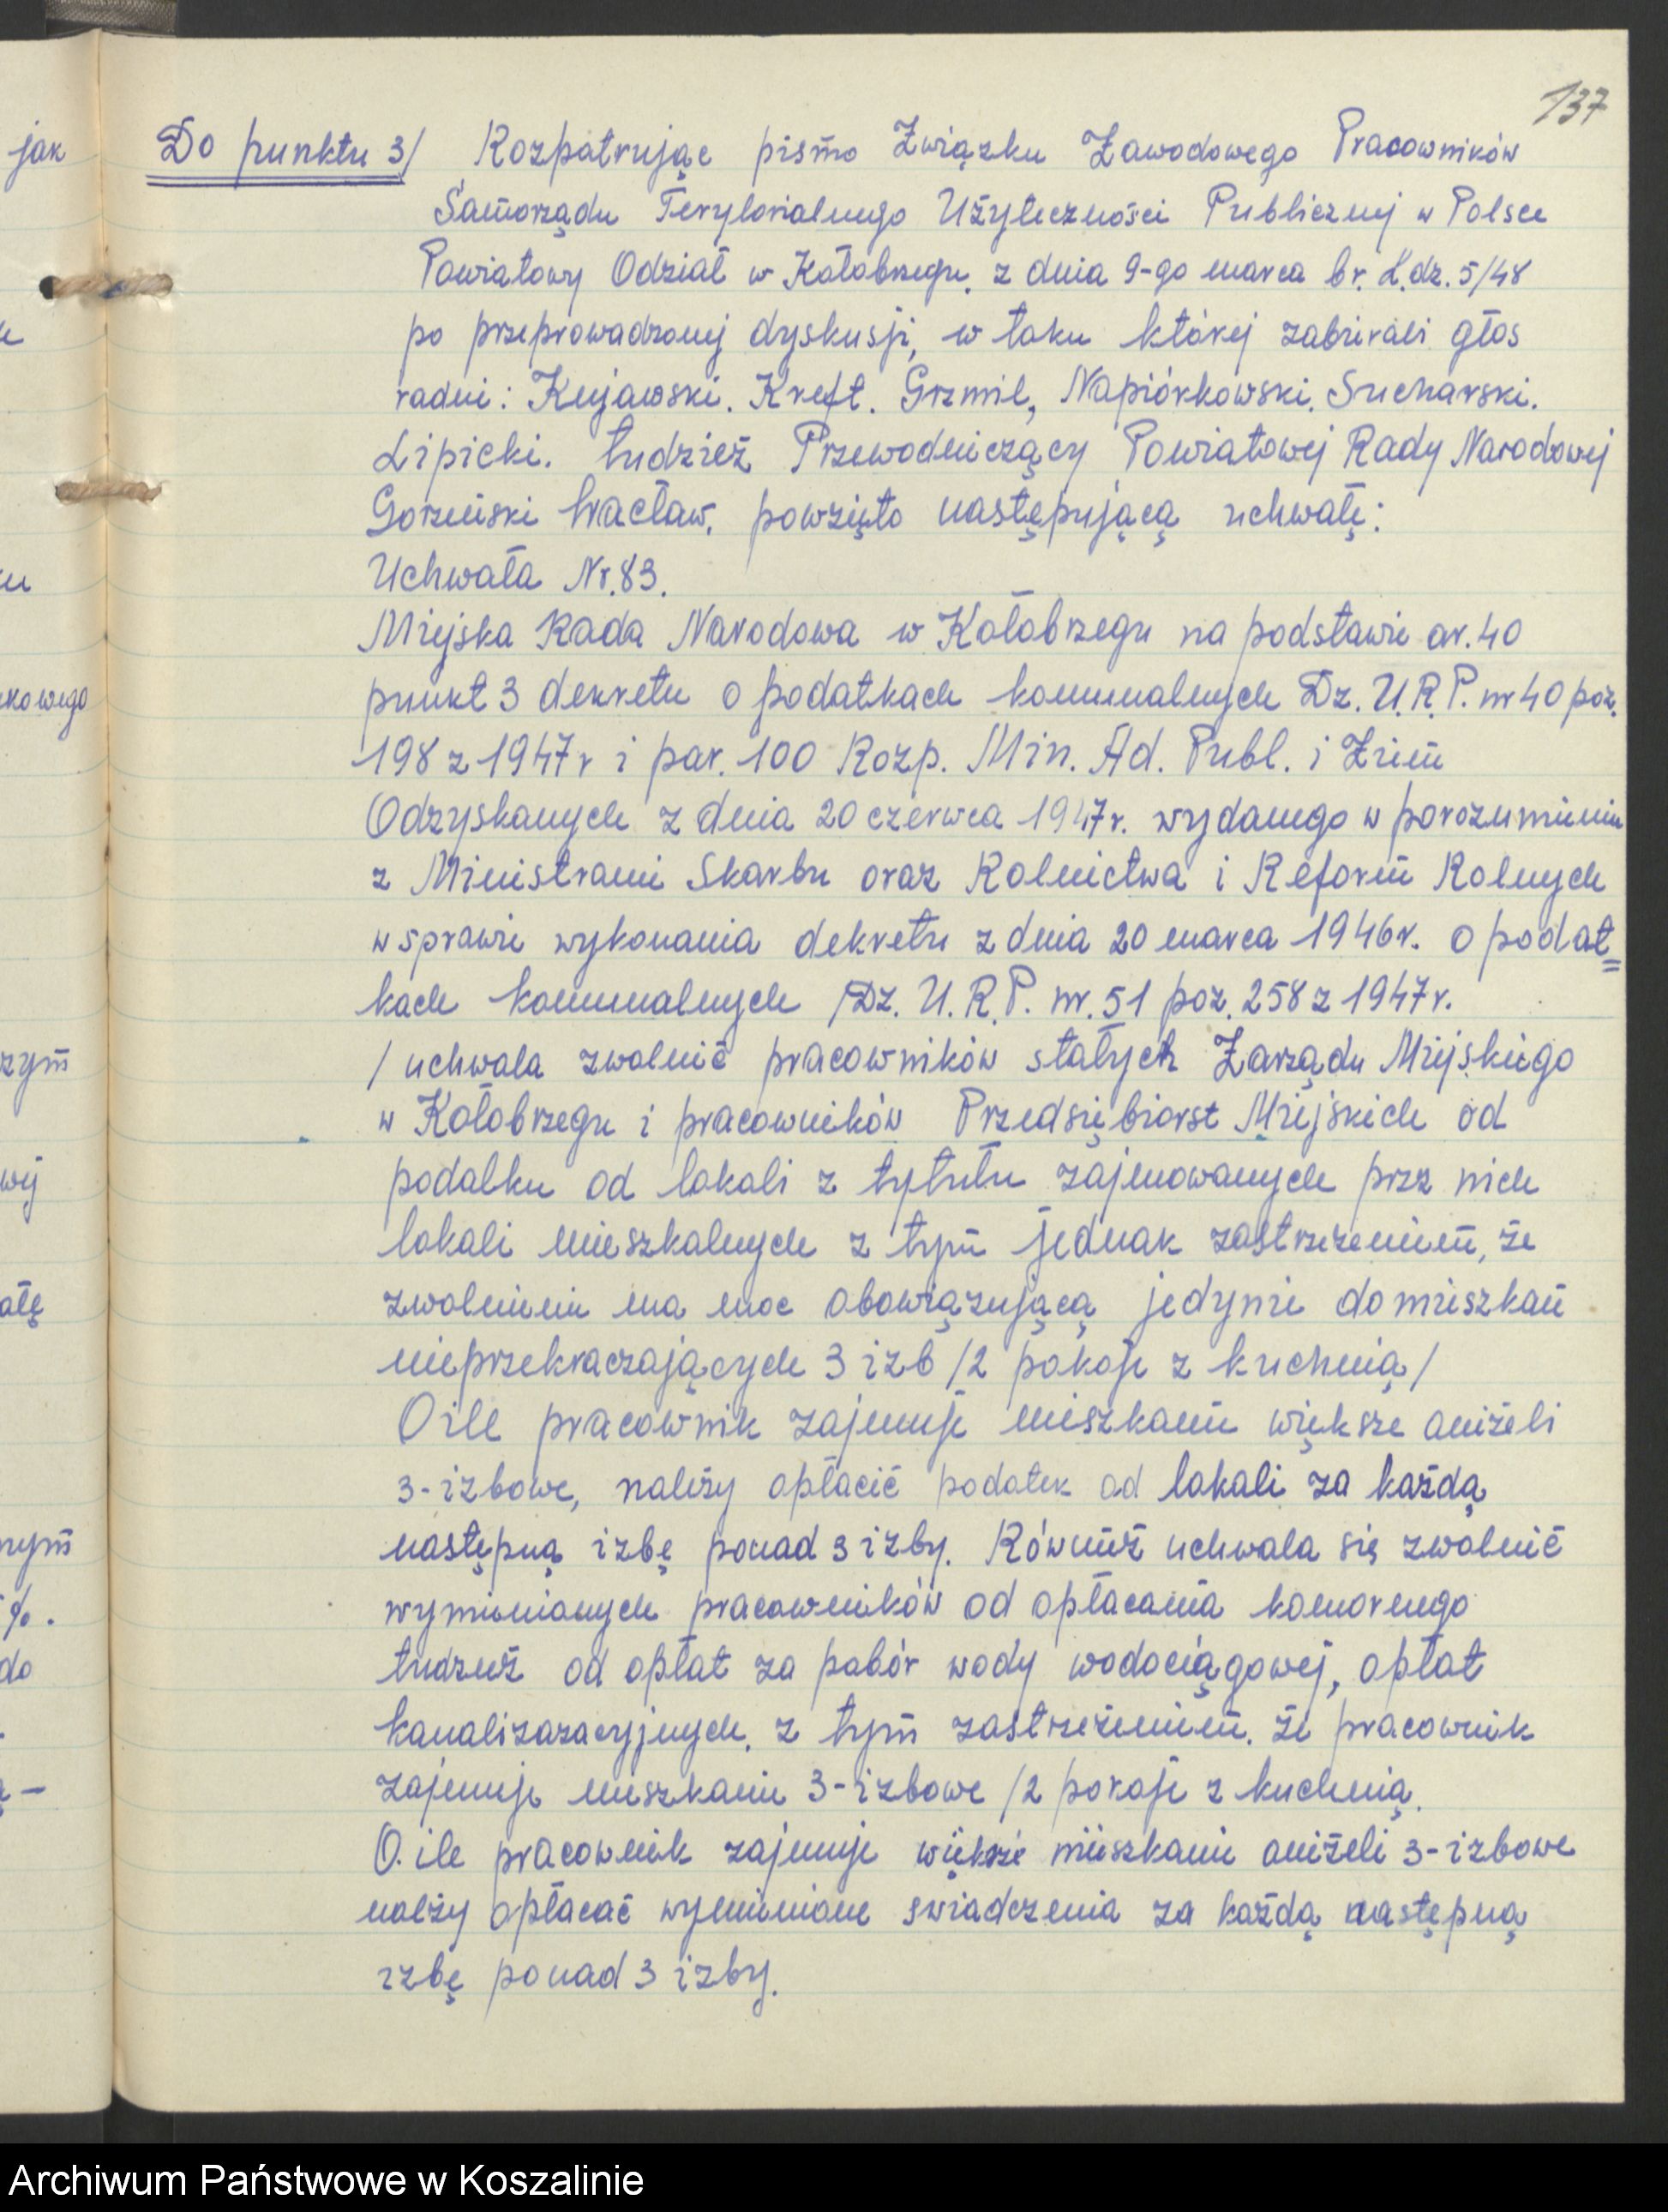 137
Do punktu 3/ Rozpatrując pismo Związku Zawodowego Pracowników
Samorządu Terytorialnego Użyteczności Publicznej w Polsce
Powiatowy Odział w Kołobrzegu, z dnia 9-go marca br. L.dz. 5/48
po przeprowadzonej dyskusji, w toku której zabierali głos
radni: Kujawski. Kreft. Grzmil, Napiórkowski, Sucharski.
Lipicki. tudzież Przewodniczący Powiatowej Rady Narodowej
Gorzeński Wacław, powzięto następującą uchwałę:
Uchwała Nr.83.
Miejska Rada Narodowa w Kołobrzegu na podstawie ar.40
punkt 3 dekretu o podatkach komunalnych Dz. U.R.P. nr 40 poz.
198 z 1947 r i par. 100 Rozp. Min. Ad. Publ. i Ziem
Odzyskanych z dnia 20 czerwca 1947 r. wydanego w porozumieniu
z Ministrami Skarbu oraz Rolnictwa i Reform Rolnych
w sprawie wykonania dekretu z dnia 20 marca 1946 r. o podat=
kach komunalnych /Dz. U. R. P. nr. 51 poz. 258 z 1947 r.
/ uchwala zwolnić pracowników stałych Zarządu Miejskiego
w Kołobrzegu i pracowników Przedsiębiorst Miejskich od
podatku od lokali z tytułu zajmowanych prze nich
lokali mieszkalnych z tym jednak zastrzeżeniem, że
zwolnienie ma moc obowiązującą jedynie do mieszkań
nieprzekraczających 3 izb /2 pokoje z kuchnią/
O ile pracownik zajmuje mieszkanie większe aniżeli
3-izbowe, należy opłacić podatek od lokali za każdą
następną izbę ponad 3 izby. Również uchwala się zwolnić
wymienionych pracowników od opłacania komornego
tudzież od opłat za pobór wody wodociągowej, opłat
kanalizazacyjnych, z tym zastrzeżeniem, że pracownik
zajmuje mieszkanie 3-izbowe /2 pokoje z kuchnią.
O. ile pracownik zajmuje większe mieszkanie aniżeli 3-izbowe
należy opłacać wymienione swiadczenia za każdą następną
izbę ponad 3 izby.
jak
kowego
zym
wej
ałę
nym
%.
do
Archiwum Państwowe w Koszalinie